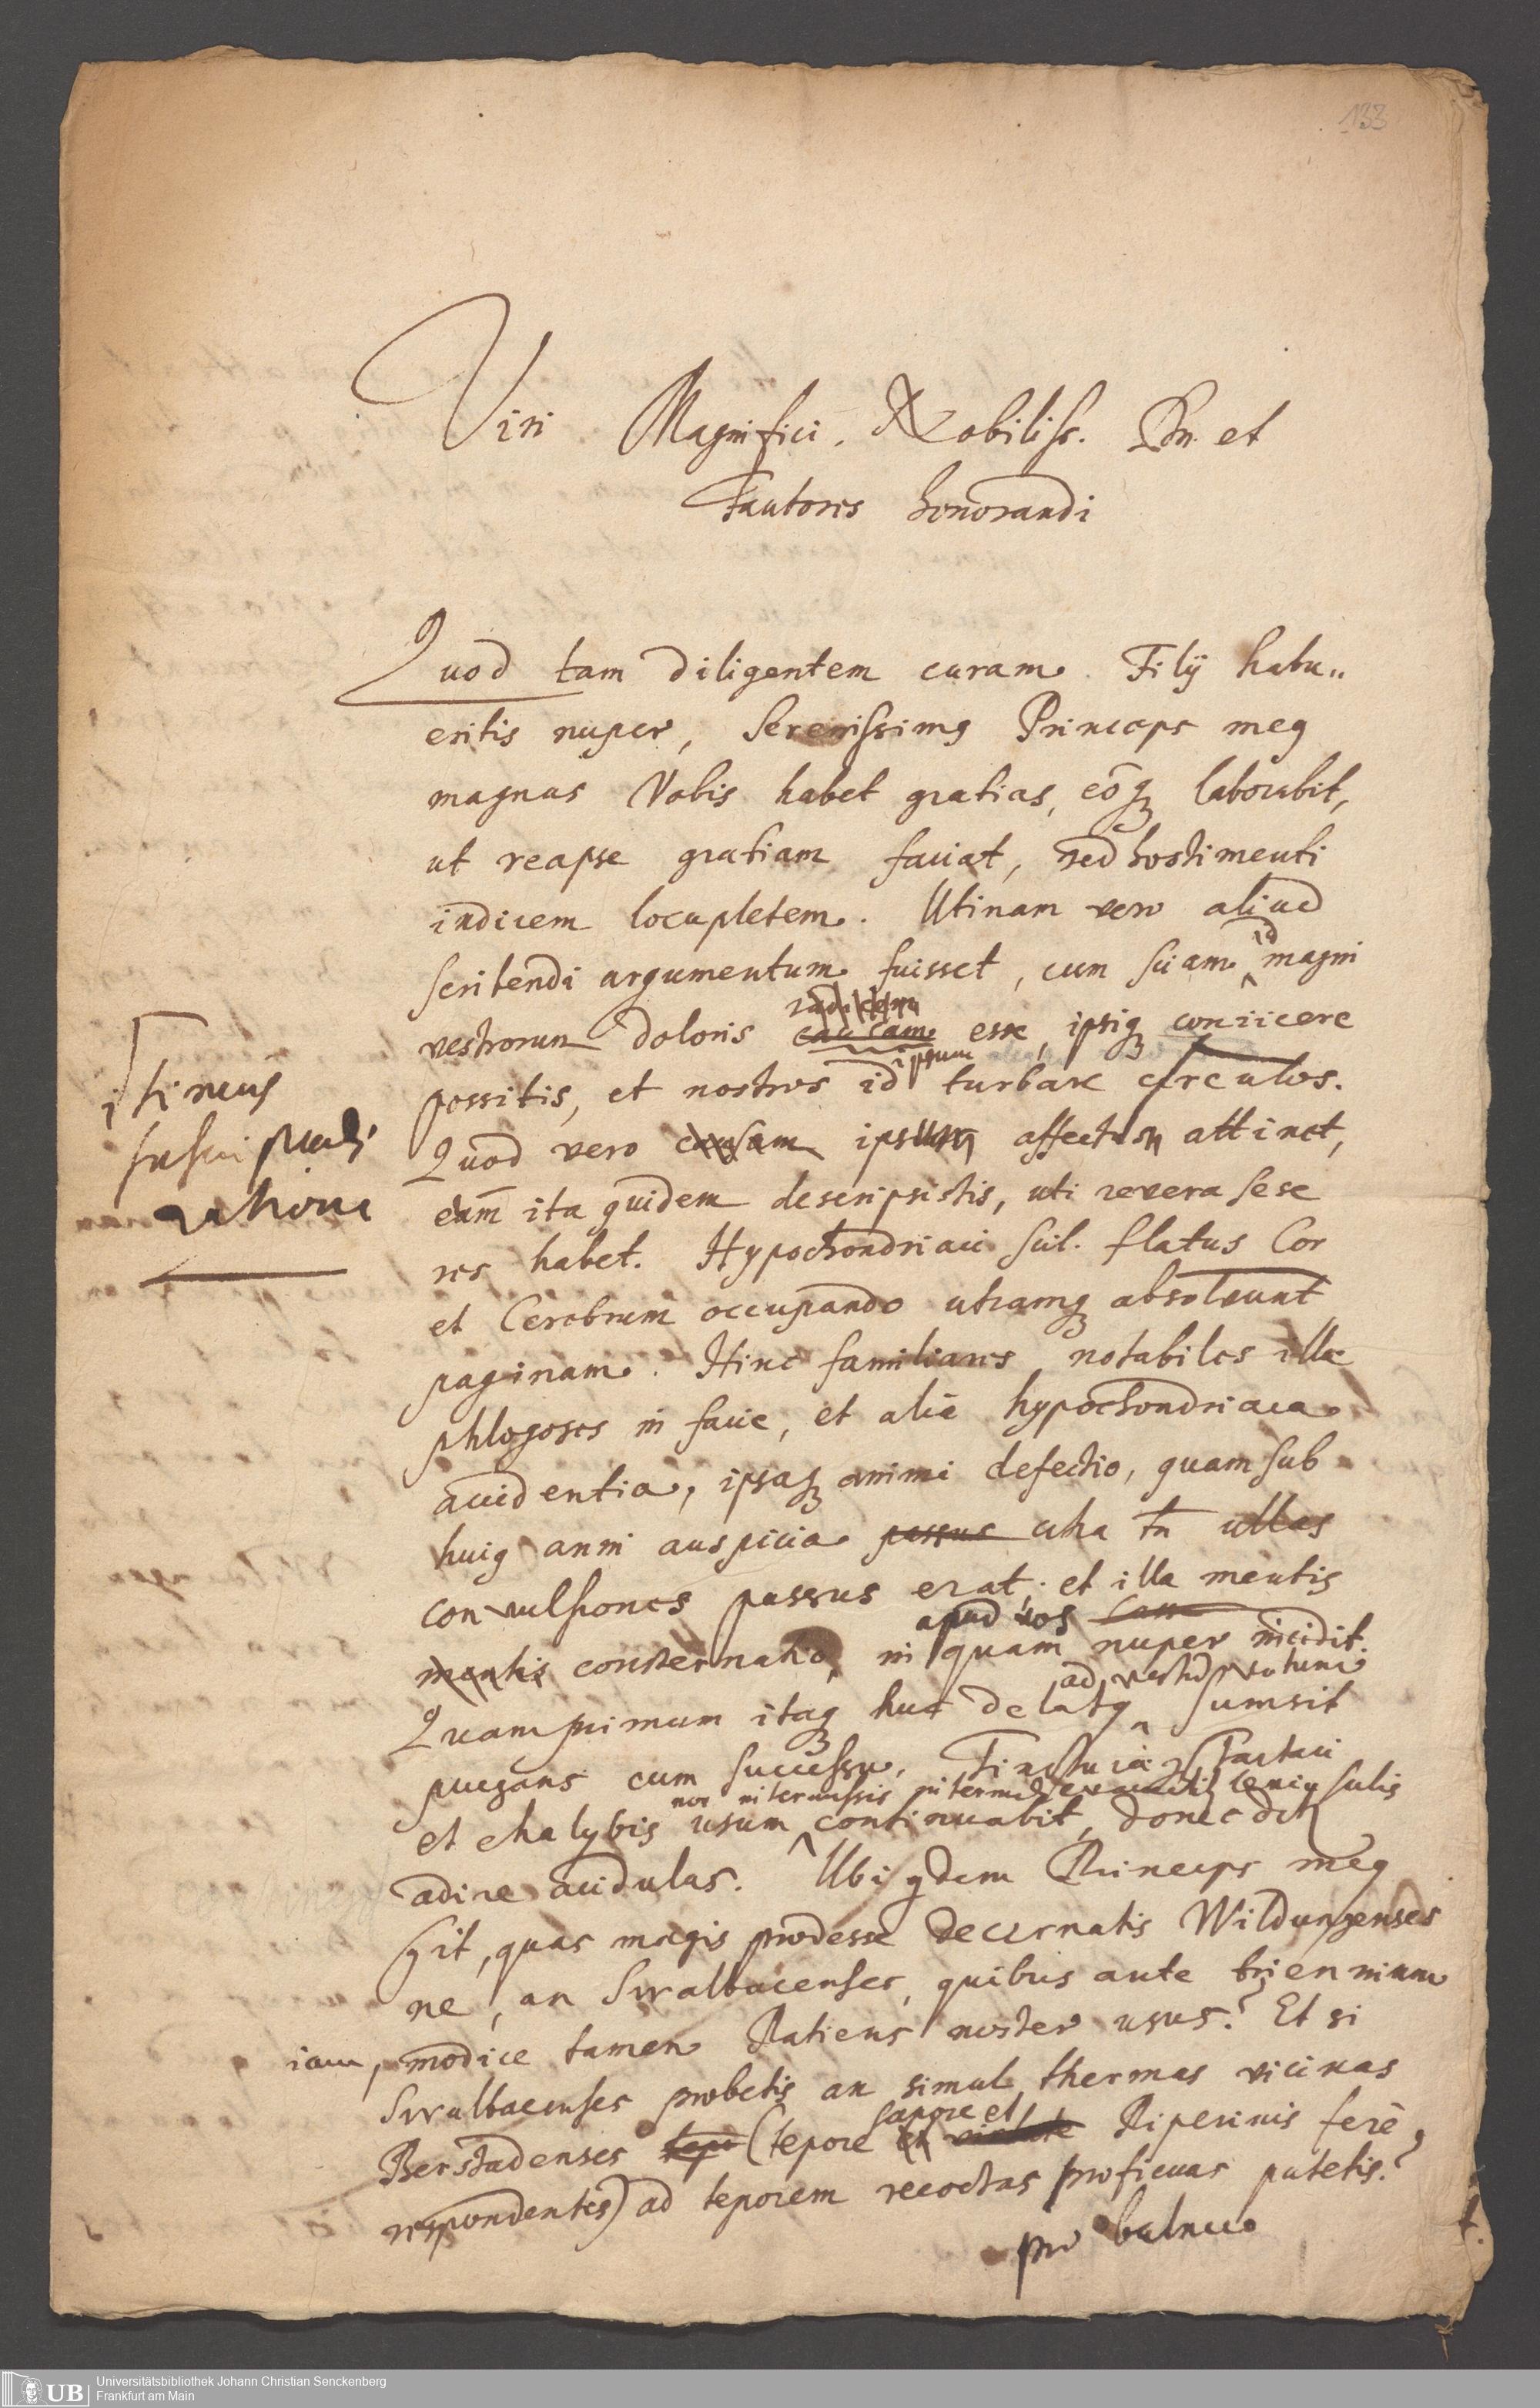 133
Viri Magnifici, Nobiliss. Dn. et
Fautores honorandi
Quod tam diligentem curam Filij habu„
eritis nuper, Serenissimꝰ Princeps meꝰ
magnas Vobis habet gratias, eoq́ꝫ laborabit,
ut reapse gratiam faciat, hostimenti
indicem locupletem. Utinam vero aliud
scribendi argumentum fuisset, cum sciam id magni
vestrorum doloris causam esse, ipsiqꝫ coniicere
possitis, et nostros id ipsum turbare circulos.
Quod vero causam ipsum affectum attinet,
eam ita quidem descripsistis, uti revera sese
res habet. Hypochondriaci scil. flatus Cor
et Cerebrum occupando utramqꝫ absolvunt
paginam. Hinc familiares, notabiles illae
phlogoses in facie, et alia hypochondriaca
accidentia, ipsaqꝫ animi defectio, quam sub
huiꝰ anni auspicia passus citra tn ullas
convulsiones passus erat, et illa mentis
mentis consternatio, in quam apud vos nuper incidit.
Quamprimum itaqꝫ huc delatꝰ, sumsit
purgans cum successu. Tincturae Tartari
et chalybis usum continuabit, donec
adire acidulas. Ubi qdem Princeps meꝰ
scit, quas magis prodesse decernatis Wildungenses
ne, an Swalbacenses, quibus ante triennium
iam, modice tamen Patiens noster usus? Et si
Swalbacenses probetis an simul thermas vicinas
Berstadenses (tepore sapore et Piperinis ferè
respondentes) ad teporem recoctas proficuas putetis?
pro balneo
Itineris
suscipiendi
ratione
Universitätsbibliothek Johann Christian Senckenberg
Frankfurt am Main
UB